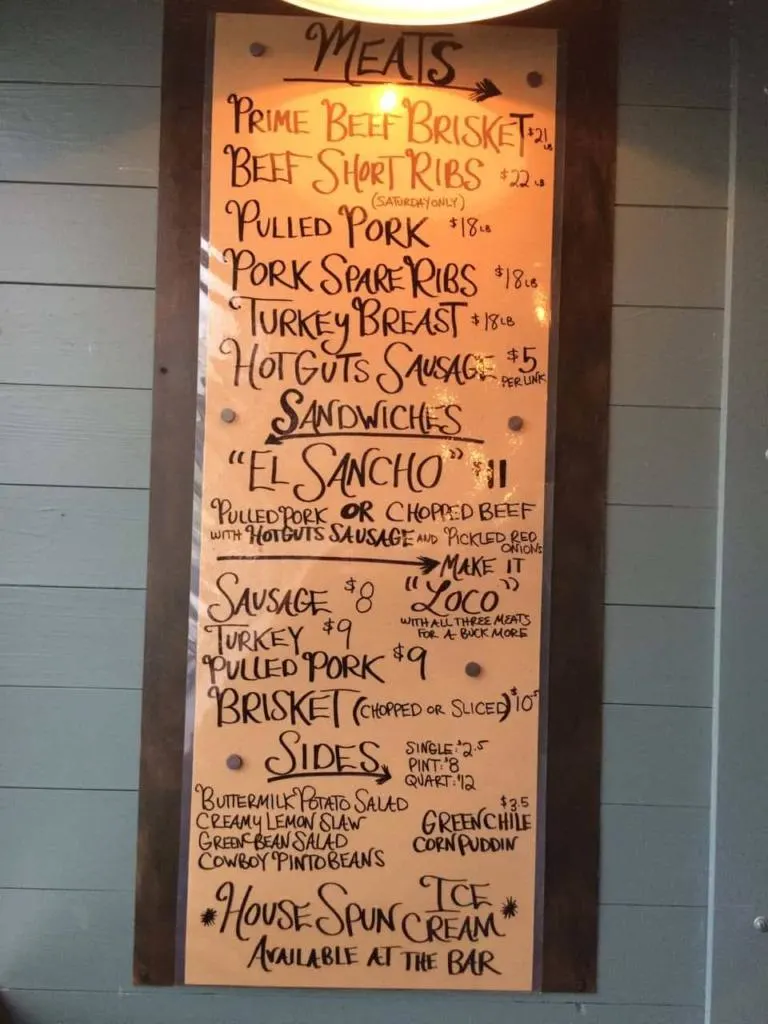 MEATS
PRIME BEEF BRISKET $21 LB
BEEF SHORT RIBS $22 LB
(SATURDAY ONLY)
PULLED PORK $18 LB
PORK SPARE RIBS $18 LB
TURKEY BREAST $18 LB
HOT GUTS SAUSAGE $5
PER LINK
SANDWICHES
"EL SANCHO" $11
PULLED PORK OR CHOPPED BEEF
WITH HOT GUTS SAUSAGE AND PICKLED RED
ONIONS
MAKE IT
"LOCO"
WITH ALL THREE MEATS
FOR A BUCK MORE
SAUSAGE $8
TURKEY $9
PULLED PORK $9
BRISKET (CHOPPED OR SLICED) $10
SIDES
SINGLE: $2.5
PINT: $8
QUART: $12
BUTTERMILK POTATO SALAD
CREAMY LEMON SLAW
GREEN BEAN SALAD
COWBOY PINTO BEANS
$3.5
GREEN CHILE
CORN PUDDIN
*HOUSE SPUN ICE CREAM*
AVAILABLE AT THE BAR